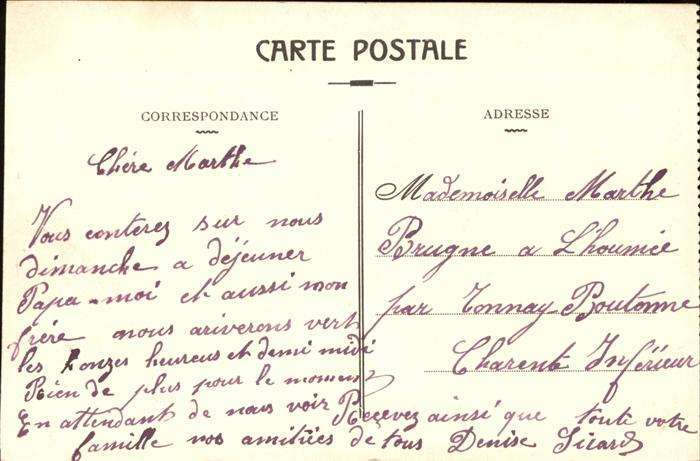 CARTE POSTALE
CORRESPONDANCE
Chère Marthe
Vous conterez sur nous
dimanche a déjeuner
Papa-moi et aussi mon
frère nous ariverons vert
les honzes heureus et demi midi
Rien de plus pour le moment
En attendant de nous voir Recevez ainsi que toute votre
famille nos amitiées de tous Denise Sicard
ADRESSE
Mademoiselle Marthe
Brugne a L'houmée
par Tonnay-Boutonne
Charente Inférieur